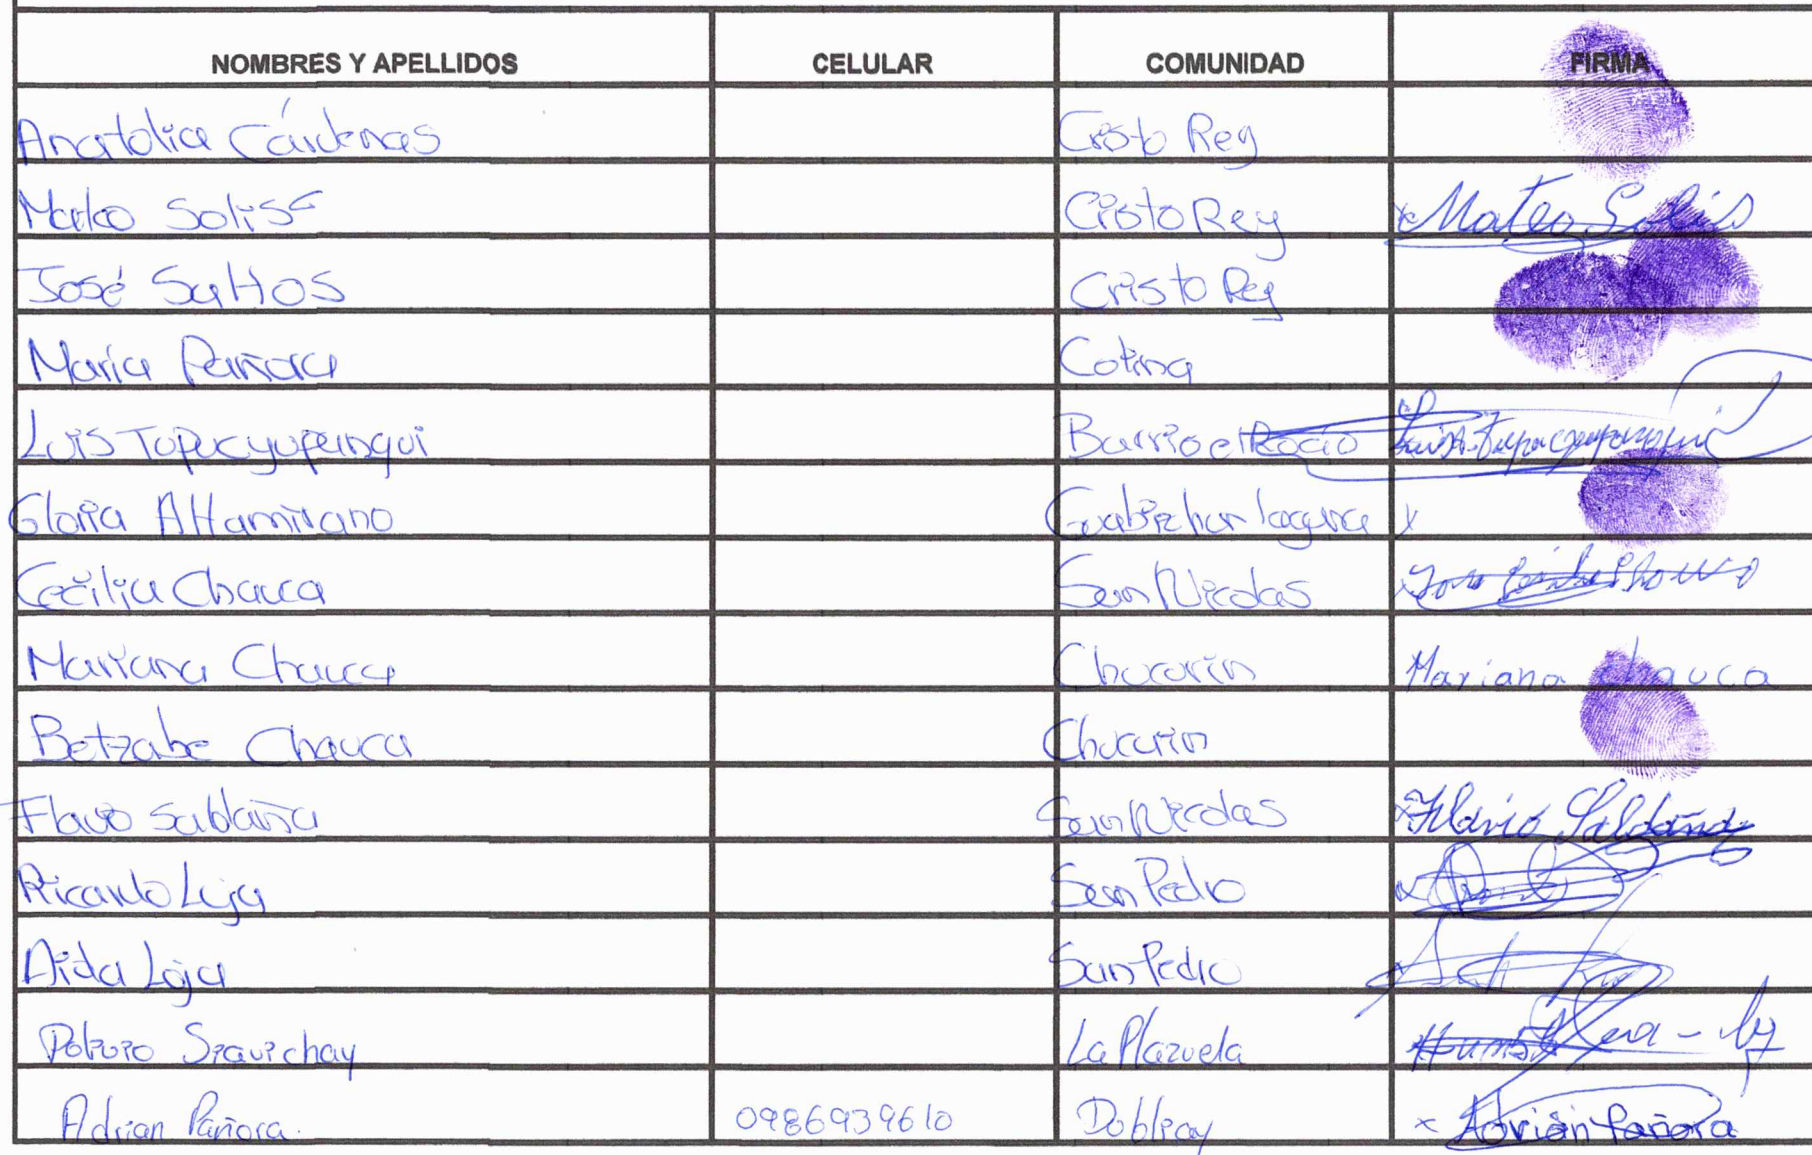 NOMBRES Y APELLIDOS CELULAR COMUNIDAD FIRMA
Anatolia Cárdenas Cristo Rey
Mateo Solis Cristo Rey Mateo Solis
José Saltos Cristo Rey
María Pañora Cotina
Luis Tupacyupanqui Barrio el Rocio Luis A. Tupacyupanqui
Gloria Altamirano Guabizhun laguna x
Cecilia Chauca San Nicolas
Mariana Chauca Chucarin Mariana Chauca
Betzabe Chauca Chucarin
Flavio Saldaña San Nicolas x Flavio Saldaña
Ricardo Loja San Pedro
Aida Loja San Pedro
Polivio Siavichay La Plazuela
Adrian Pañora. 0986939610 Doblcay x Adrián Pañora